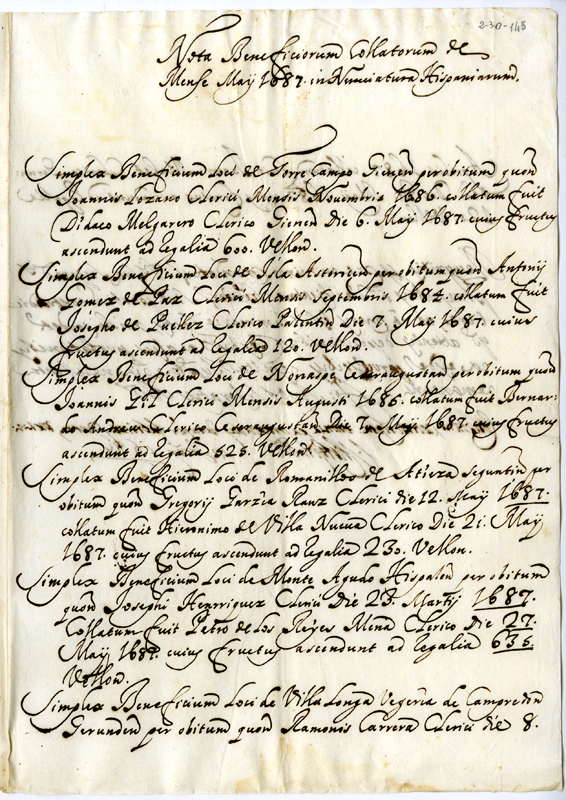 2-30-145
Nota Beneficiorum Collatorum de
Mense Maij 1687. in Nunciatura Hispaniarum.
Simplex Beneficium Loci de Torre Campo Gienen per obitum quon
Joannis Lozano Clerici Mensis Novembris 1686. collatum fuit
Didaco Melgarero Clerico Gienen Die 6. Maij 1687. cuius fructus
ascendunt ad Regalia 600. Vellon.
Simplex Beneficium Loci de Isla Astoricen per obitum quon Antonij
Gomez de Paz Clerici Mensis Septembris 1684. collatum fuit
Josepho de Clerico Palentin Die 7. Maij 1687. cuius
fructus ascendunt ad Regalia 120. Vellon.
Simplex Beneficium Loci de Nonaspe Cesaraugustan per obitum quon
Joannis Gil Clerici Mensis Augusti 1686. collatum fuit Bernar-
do Andreu Clerico Cesaraugustan Die 7. Maij 1687. cuius fructus
ascendunt ad Regalia 525. Vellon.
Simplex Beneficium Loci de Romanillos de Atieza Seguntin per
obitum quon Gregorij Garzia Ranz Clerici die 12. Maij 1687.
collatum fuit Hieronimo de Villa Nueva Clerico Die 21. Maij
1687. cuius fructus ascendunt ad Regalia 230. Vellon.
Simplex Beneficium Loci de Monte Agudo Hispalen per obitum
quon Josephi Henrriquez Clerici Die 23. Martij 1687.
Collatum fuit Petro de los Reyes Mena Clerico Die 27.
Maij 1687. cuius fructus ascendunt ad Regalia 635.
Vellon.
Simplex Beneficium Loci de Villa Longa Vegeria de Campredon
Gerunden per obitum quon Ramonis Carrera Clerici die 8.